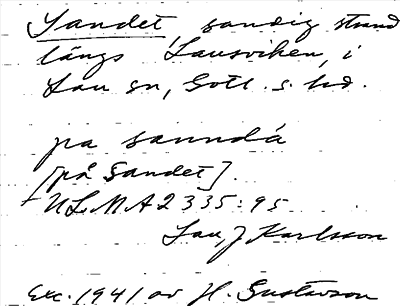 Sandet, sandig strand
längs Lausviken, i
Lau sn, Gotl. s. hd.
pa sanndá
[på Sandet].
ULMA 2335:95.
Lau, J Karlsson
Exc. 1941 av H. Gustavson